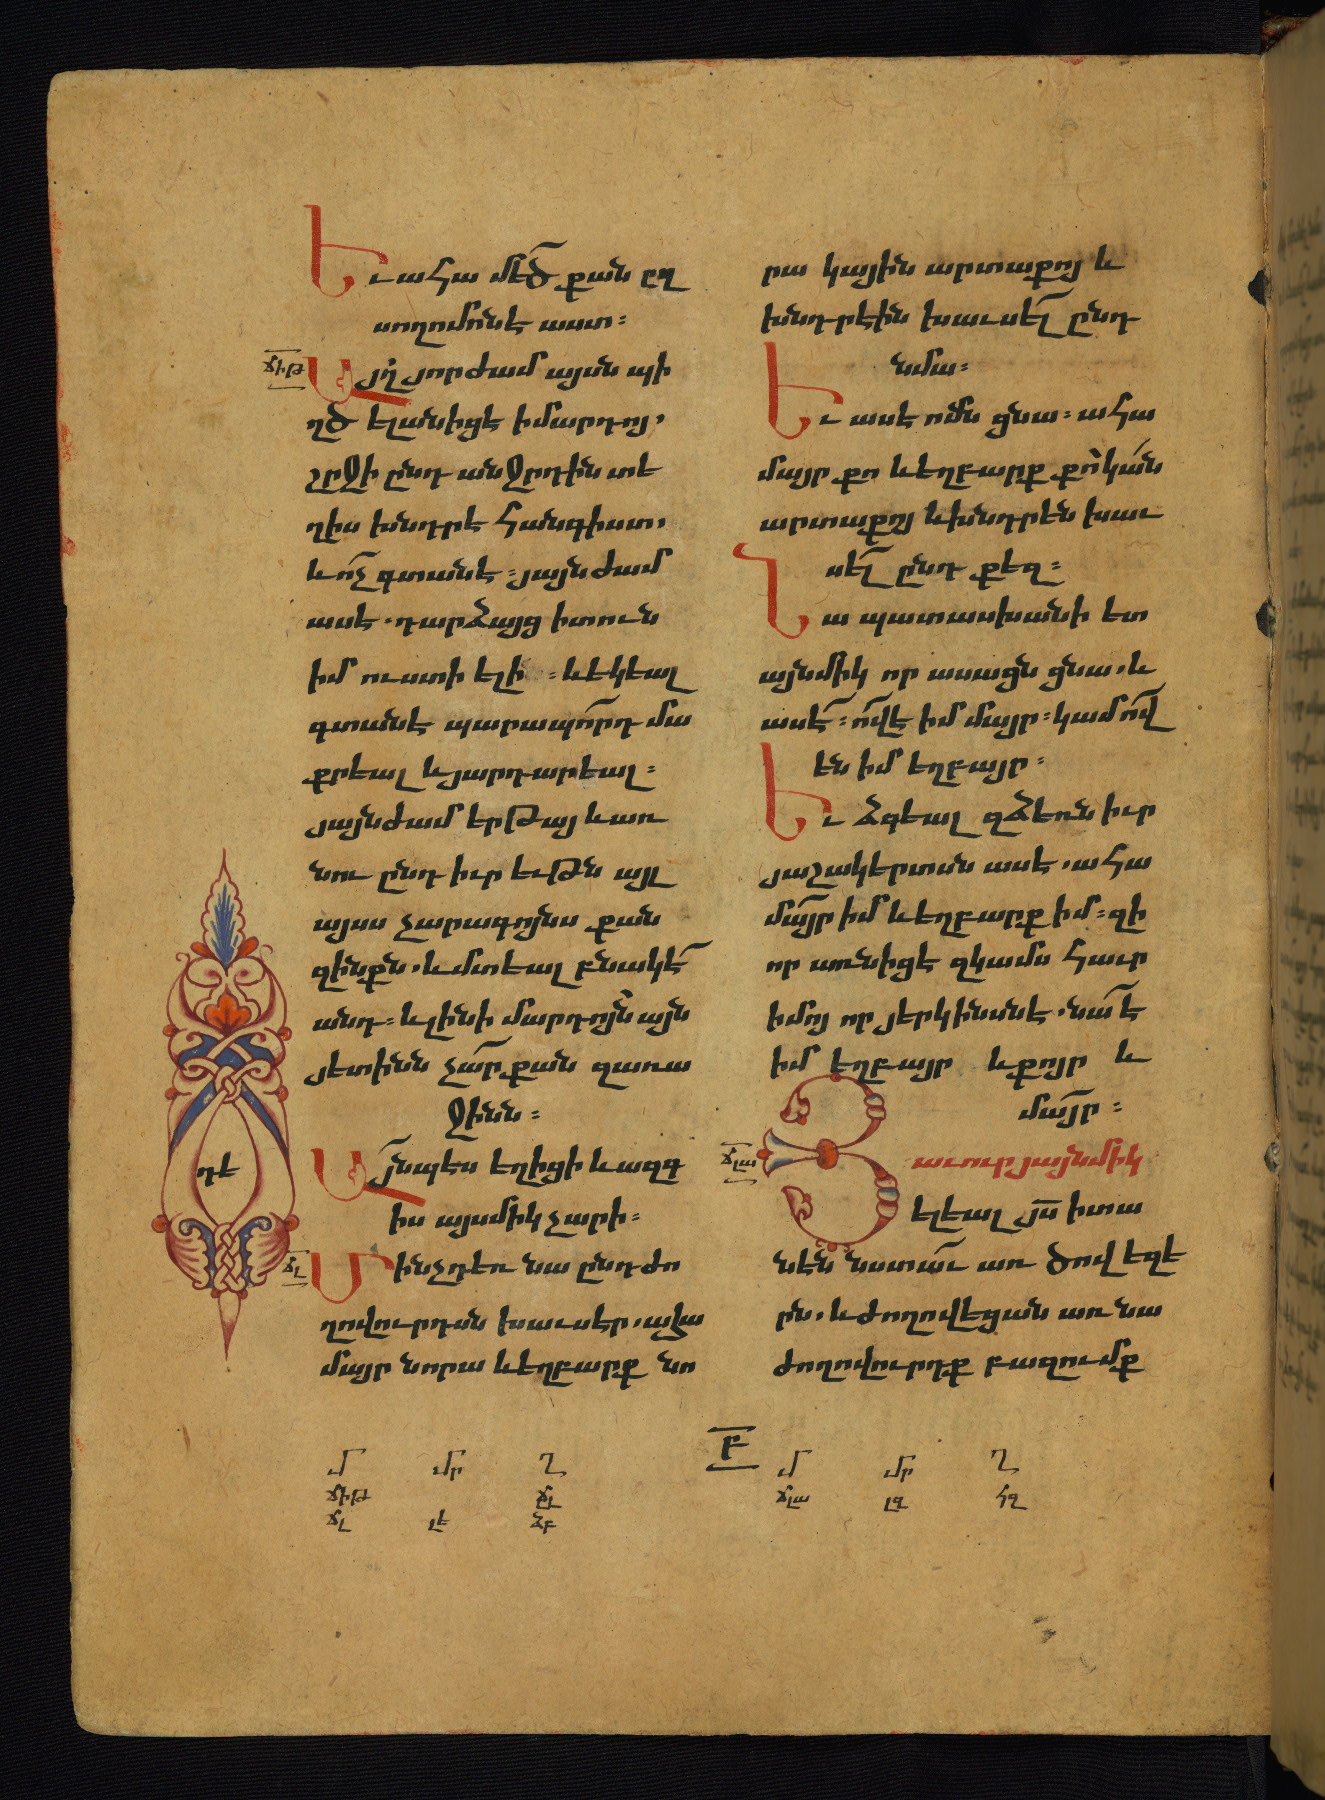 Եւ ահա մեծ քան ըզ
սողոմոնէ աստ։
ՃԻԹ
Այղ յորժամ այսն պի
ղծ ելանիցէ ի մարդոյ,
շրջի ընդ անջրդին տե
ղիս խնդրէ հանգիստ,
և ոչ գտանէ։ յայնժամ
ասէ. դարձայց ի տուն
իմ ուստի ելի։ և եկեալ
գտանէ պարապորդ մա
քրեալ և յարդարեալ։
յայնժամ երթայ և առ
նու ընդ իւր եւթն այլ
այսս չարագոյնս քան
զինքն. և մտեալ բնակէ
անդ։ և լինի մարդոյն այն
յետինն չար քան զառա
ջինն։
Այնպէս եղիցի և ազգ
իս այսմիկ չարի։
ՃԼ
Մինչդեռ նա ընդ ժո
ղովուրդսն խաւսէր, ահա
մայր նորա և եղբարք նո
դե
րա կային արտաքոյ և
խնդրէին խաւսել ընդ
նմա։
Եւ ասէ ոմն ցնա։ ահա
մայր քո և եղբարք քո կան
արտաքոյ և խնդրեն խաւ
սել ընդ քեզ։
Նա պատասխանի ետ
այնմիկ որ ասացն ցնա. և
ասէ։ ո՞վ է իմ մայր։ կամ ո՞վ
են իմ եղբայր։
Եւ ձգեալ զձեռն իւր
յաշակերտսն ասէ. ահա
մայր իմ և եղբարք իմ։ զի
որ առնիցէ զկամս հաւր
իմոյ որ յերկինսնէ. նա է
իմ եղբայր և քոյր և
մայր։
ՃԼԱ
Յաւուր յայնմիկ
ելեալ յս ի տա
նէն նստաւ առ ծովեզե
րն. և ժողովեցան առ նա
ժողովուրդք բազումք
Բ
Մ Մր Ղ
ՃԻԹ ՃԼ
ՃԼ ԼԵ ՁԲ
Մ Մր Ղ
ՃԼԱ ԼԶ ՀԶ